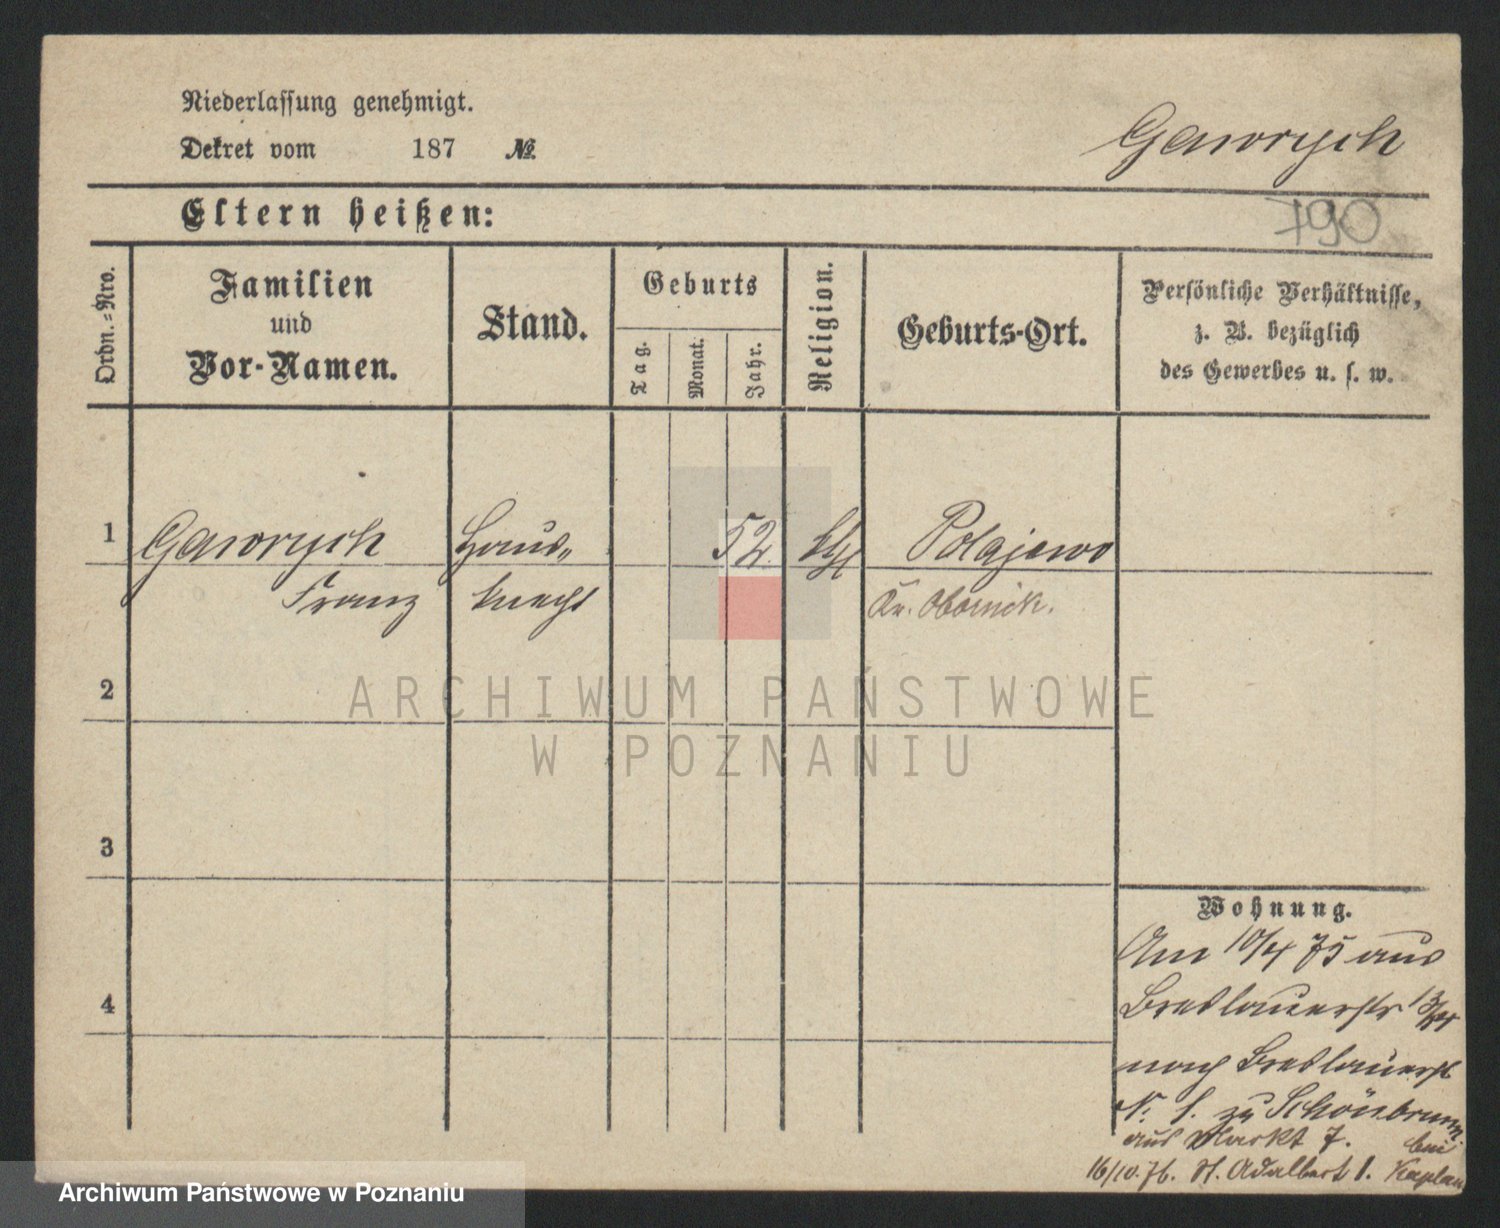 Niederlassung genehmigt.
Dekret vom 187 №
Gaworych
Eltern heißen:
790
Ordn.=Nro.
Familien
und
Vor-Namen.
Stand.
Geburts
Tag.
Monat.
Jahr.
Religion.
Geburts-Ort.
Persönliche Verhältnisse,
z. B. bezüglich
des Gewerbes u. s. w.
1 Gaworych Haus- 52 kth Polajewo
Franz knecht Kr. Obornik.
2
ARCHIWUM PAŃSTWOWE
W POZNANIU
3
Wohnung.
Am 10/4 75 aus
Breslauerstr 13/14
4
nach Breslauerst
N. 1. zu Schönbrunn.
aus Markt 7. bei
16/10.76. St. Adalbert 1. Kaplan
Archiwum Państwowe w Poznaniu